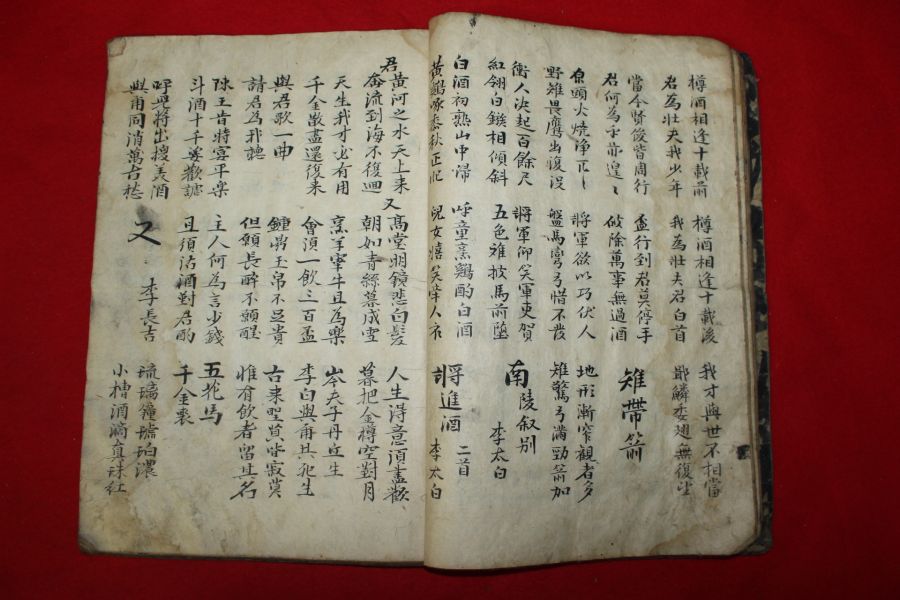 樽酒相逢十載前
君為壯夫我少年
樽酒相逢十載後
我為壯夫君白首
我才與世不相當
戢鱗委翅無復望
當今賢俊皆周行
君何為乎亦遑〻
盃行到君莫停手
破除萬事無過酒
雉帶箭
原頭火燒淨兀〻
野雉畏鷹出復沒
將軍欲以巧伏人
盤馬彎弓惜不發
地形漸窄觀者多
雉驚弓滿勁箭加
衝人決起百餘尺
紅翎白鏃相傾斜
將軍仰笑軍吏賀
五色離披馬前墮
南陵叙別
李太白
白酒初熟山中歸
黃鷄啄黍秋正肥
呼童烹鷄酌白酒
兒女嬉笑牽人衣
將進酒 二首
李太白
君
黃河之水天上來
奔流到海不復迴
又
高堂明鏡悲白髮
朝如青絲暮成雪
人生得意須盡歡
暮把金樽空對月
天生我才必有用
千金散盡還復來
烹羊宰牛且為樂
會須一飲三百盃
岑夫子丹丘生
李白與爾共死生
與君歌一曲
請君為我聽
鍾鼎玉帛不足貴
但願長醉不願醒
古來聖賢皆寂寞
惟有飲者留其名
陳王昔時宴平樂
斗酒十千恣歡謔
主人何為言少錢
且須沽酒對君酌
五花馬
千金裘
呼兒將出換美酒
與爾同消萬古愁
又 李長吉
琉璃鍾琥珀濃
小槽酒滴真珠紅